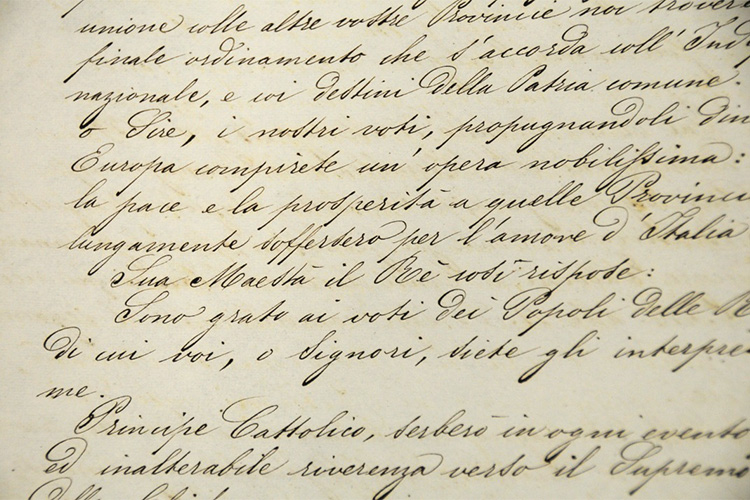 unione colle altre vostre Provincie noi trover
finale ordinamento che s'accorda coll' Ind
nazionale, e coi destini della Patria comune.
o Sire, i nostri voti, propugnandoli din
Europa compirete un' opera nobilissima:
la pace e la prosperità a quelle Provinci
lungamente soffersero per l'amore d' Italia
Sua Maestà il Rè così rispose:
Sono grato ai voti dei Popoli delle R
di cui voi, o Signori, siete gli interpre
me.
Principe Cattolico, serberò in ogni evento
ed inalterabile riverenza verso il Supremo